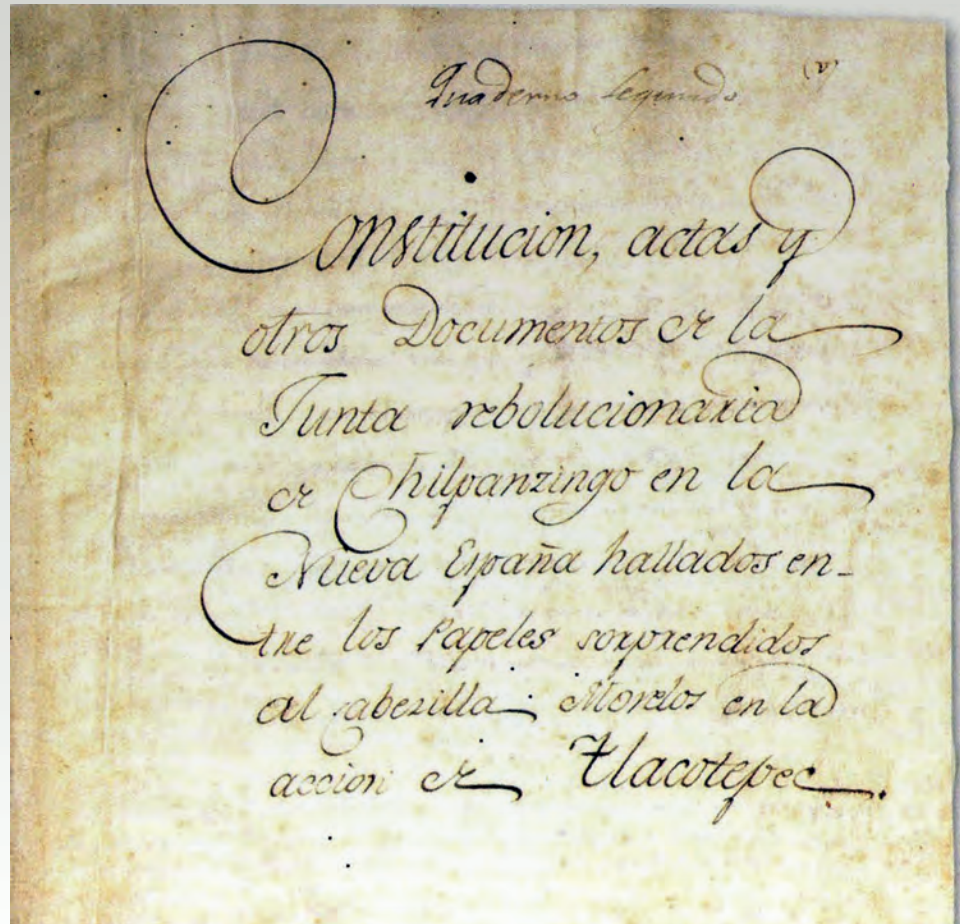 Quaderno Segundo
Constitucion, actas y
otros Documentos de la
Junta rebolucionaria
de Chilpanzingo en la
Nueva España hallados en-
tre los Papeles sorprendidos
al cabezilla Morelos en la
accion de Tlacotepec.